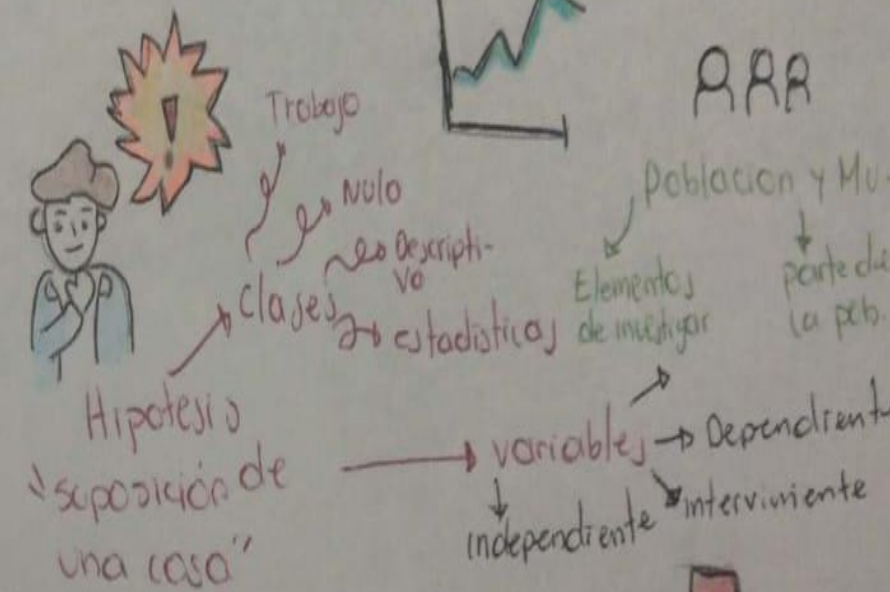 !
Trabajo
Nulo
Descripti-
vo
Clases
estadisticas
Hipotesis
"suposición de
una cosa"
Poblacion y Mu
Elementos
de investigar
parte de
la pob.
variables
Dependiente
interviniente
independiente